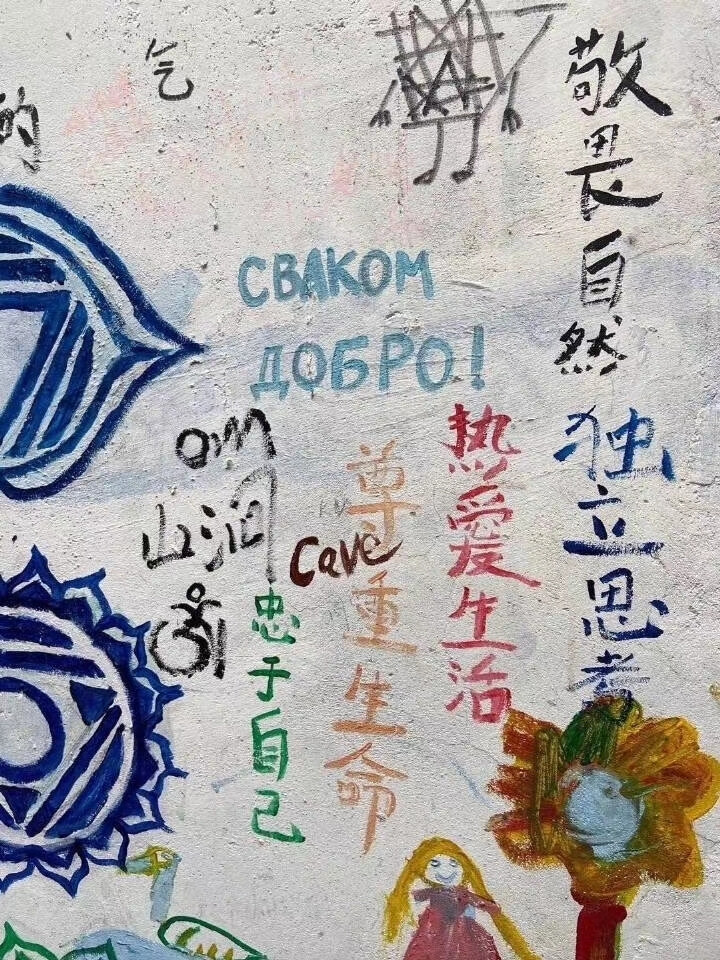 气
的
敬畏自然
СВАКОМ
ДОБРО!
独立思考
热愛生活
尊重生命
om
山洞
Cave
忠于自己